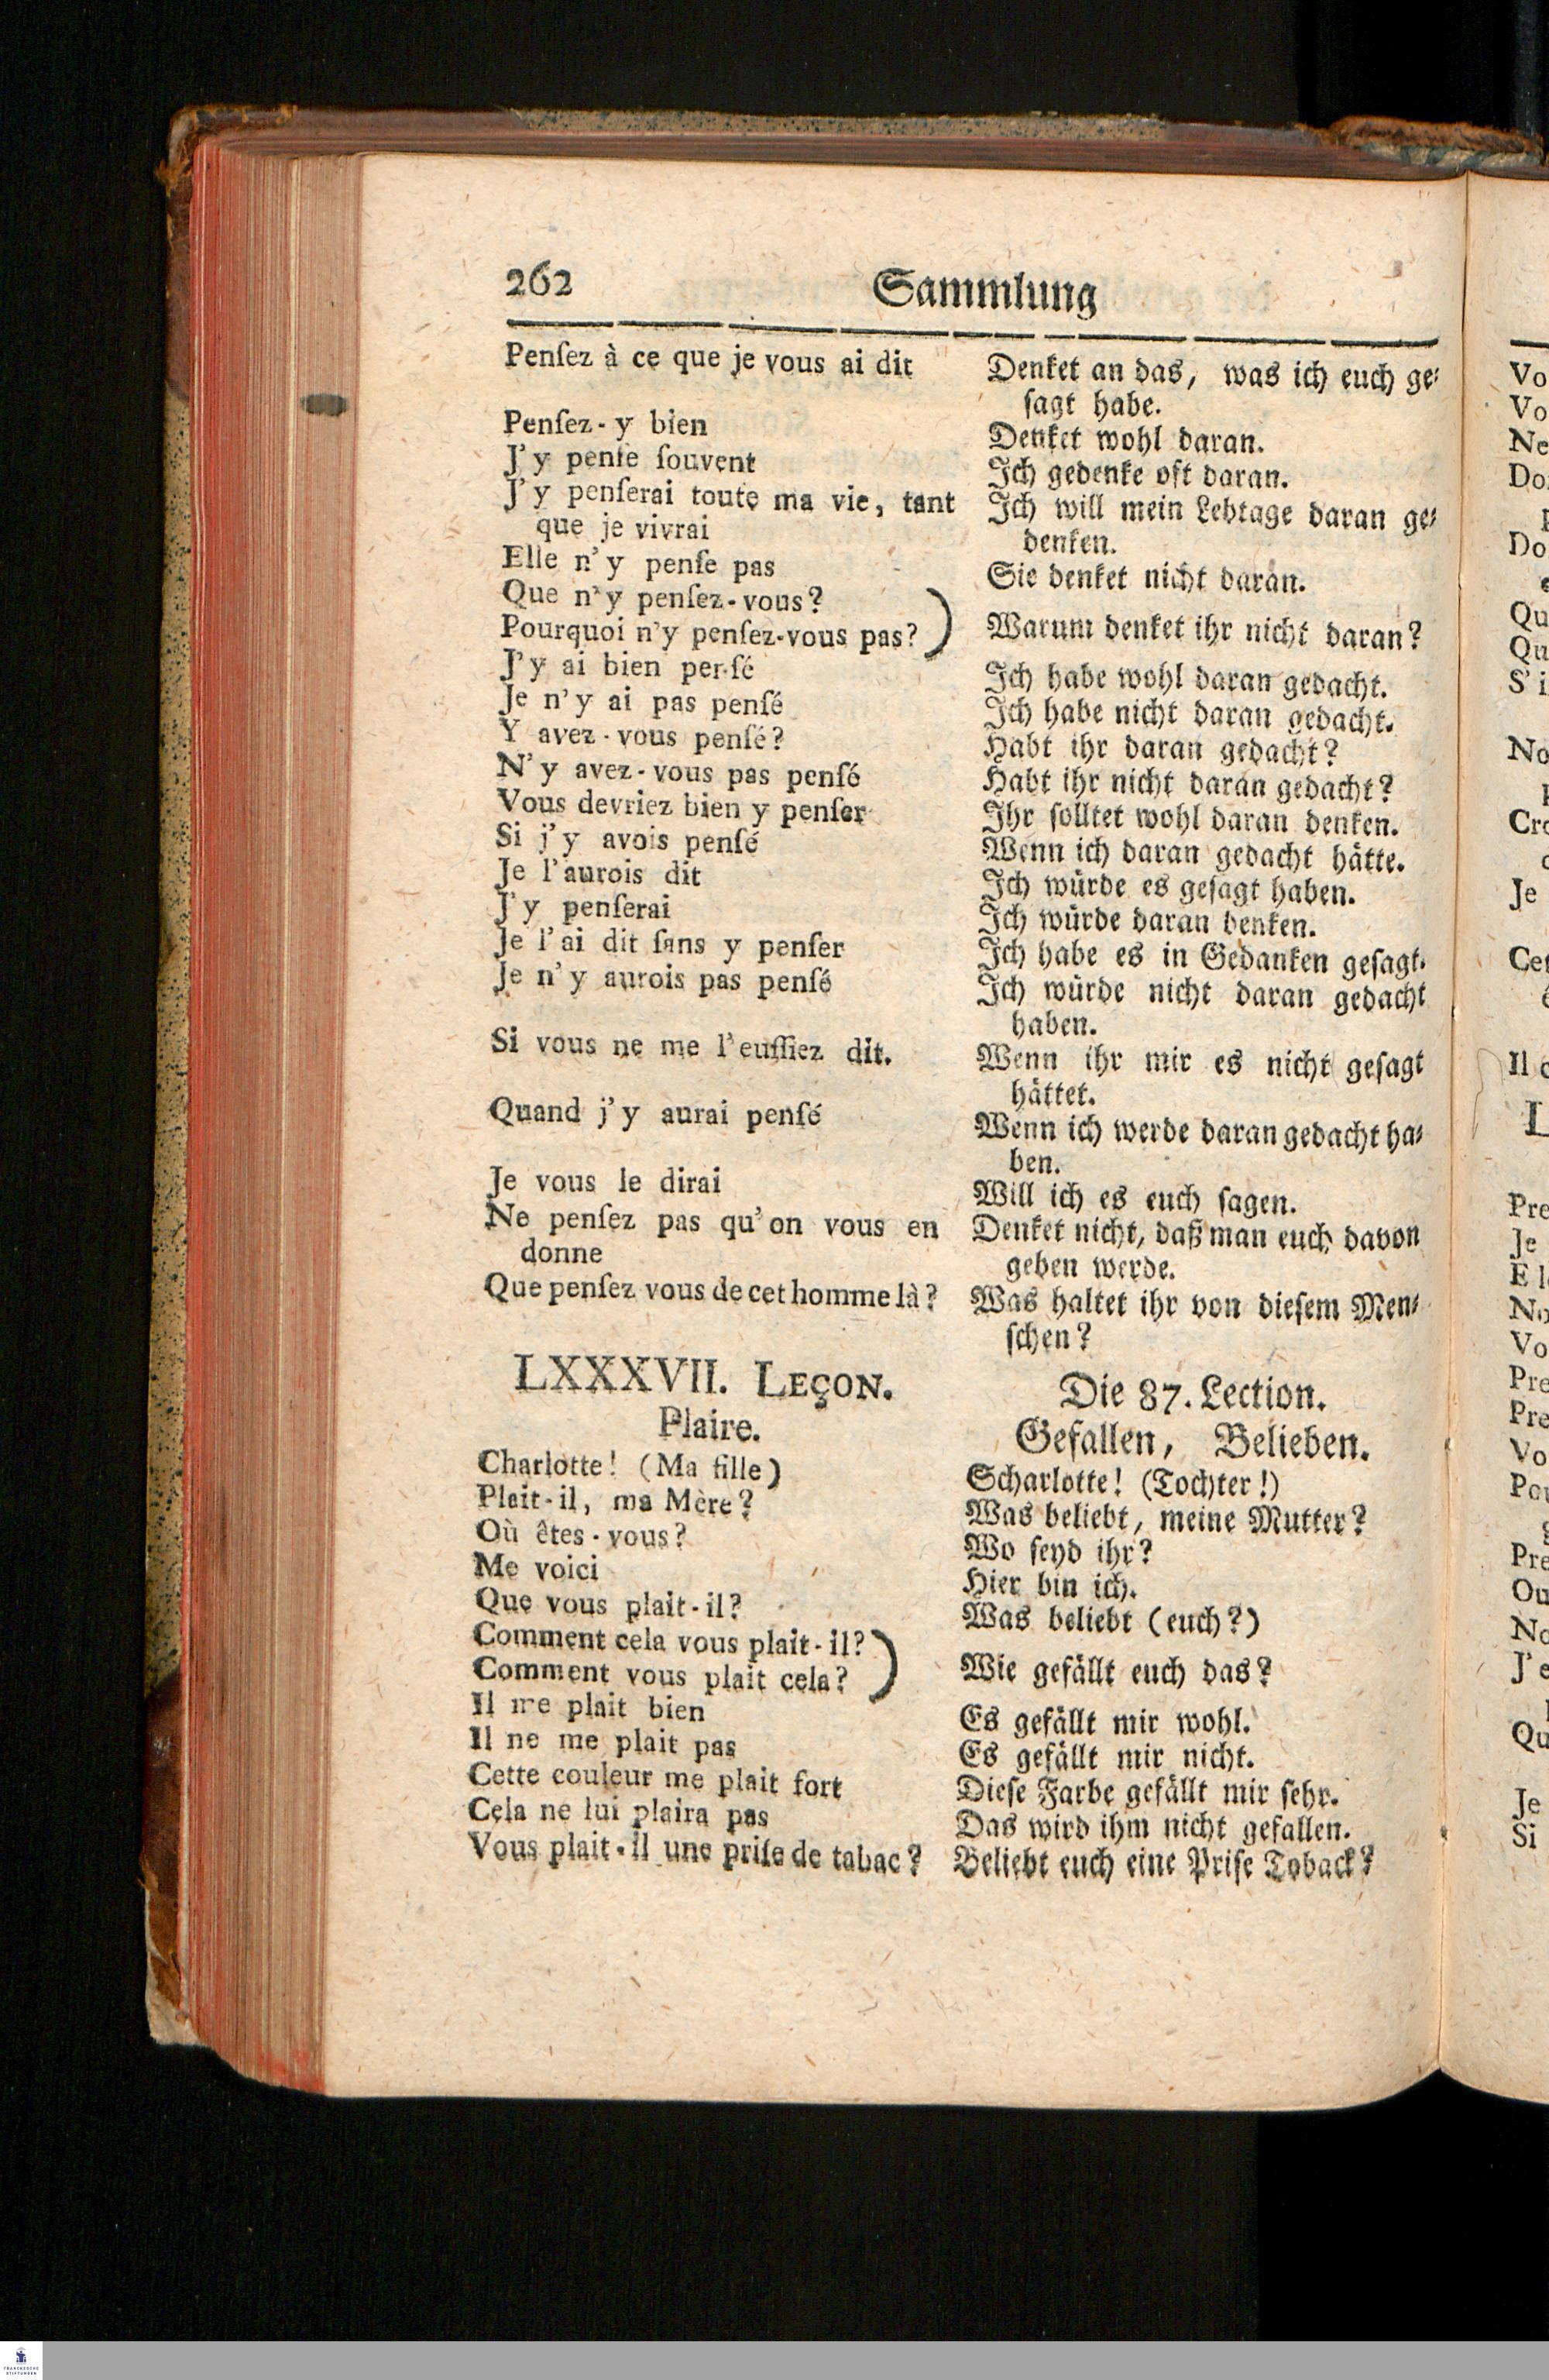 262 Sammlung
Penſez à ce que je vous ai dit
Penſez-y bien
J'y penſe ſouvent
J'y penſerai toute ma vie, tant
que je vivrai
Elle n'y penſe pas
Que n'y penſez-vous?
Pourquoi n'y penſez-vous pas? )
J'y ai bien penſé
Je n'y ai pas penſé
Y avez-vous penſé?
N'y avez-vous pas penſé
Vous devriez bien y penſer
Si j'y avois penſé
Je l'aurois dit
J'y penſerai
Je l'ai dit ſans y penſer
Je n'y aurois pas penſé
Si vous ne me l'euſſiez dit.
Quand j'y aurai penſé
Je vous le dirai
Ne penſez pas qu'on vous en
donne
Que penſez vous de cet homme là?
LXXXVII. LEÇON.
Plaire.
Charlotte! (Ma fille)
Plait-il, ma Mère?
Où êtes-vous?
Me voici
Que vous plait-il?
Comment cela vous plait-il?
Comment vous plait cela? )
Il me plait bien
Il ne me plait pas
Cette couleur me plait fort
Cela ne lui plaira pas
Vous plait-il une priſe de tabac?
Denket an das, was ich euch ge⸗
ſagt habe.
Denket wohl daran.
Ich gedenke oft daran.
Ich will mein Lebtage daran ge⸗
denken.
Sie denket nicht daran.
Warum denket ihr nicht daran?
Ich habe wohl daran gedacht.
Ich habe nicht daran gedacht.
Habt ihr daran gedacht?
Habt ihr nicht daran gedacht?
Ihr ſolltet wohl daran denken.
Wenn ich daran gedacht hätte.
Ich würde es geſagt haben.
Ich würde daran denken.
Ich habe es in Gedanken geſagt.
Ich würde nicht daran gedacht
haben.
Wenn ihr mir es nicht geſagt
hättet.
Wenn ich werde daran gedacht ha⸗
ben.
Will ich es euch ſagen.
Denket nicht, daß man euch davon
geben werde.
Was haltet ihr von dieſem Men⸗
ſchen?
Die 87. Lection.
Gefallen, Belieben.
Scharlotte! (Tochter!)
Was beliebt, meine Mutter?
Wo ſeyd ihr?
Hier bin ich.
Was beliebt (euch?)
Wie gefällt euch das?
Es gefällt mir wohl.
Es gefällt mir nicht.
Dieſe Farbe gefällt mir ſehr.
Das wird ihm nicht gefallen.
Beliebt euch eine Priſe Toback?
FRANCKESCHE
STIFTUNGEN